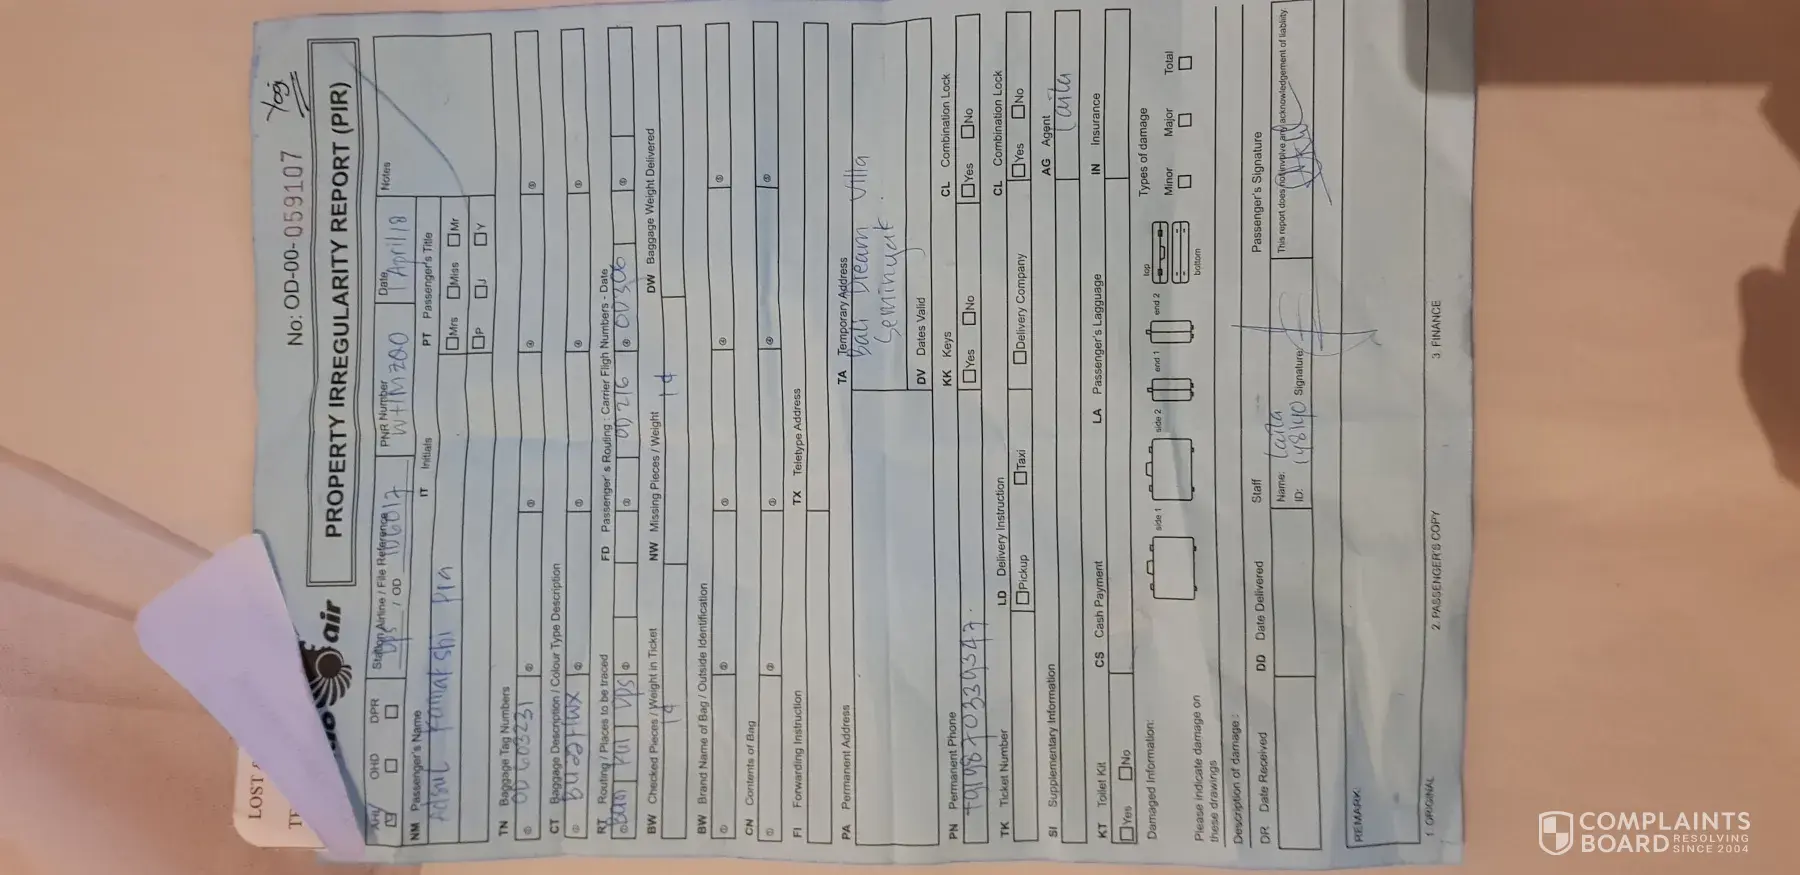 LOST
Yogi
No: OD-00-059107
air
PROPERTY IRREGULARITY REPORT (PIR)
AHL OHD DPR
Station Airline / File Reference PNR Number Date Notes
DPS / OD 1 April 18
NM Passenger's Name IT Initials PT Passenger's Title
Mrs Miss Mr
P J Y
TN Baggage Tag Numbers
① OD 603231 ② ③ ④ ⑤
CT Baggage Description / Colour Type Description
① ② ③ ④ ⑤
RT Routing / Places to be traced FD Passenger's Routing : Carrier Fligh Numbers - Date
① KUL DPS ② ③ OD 216 ④ OD306 ⑤
BW Checked Pieces / Weight in Ticket NW Missing Pieces / Weight DW Baggage Weight Delivered
BW Brand Name of Bag / Outside Identification
① ② ③ ④ ⑤
CN Contents of Bag
① ② ③ ④ ⑤
FI Forwarding Instruction TX Teletype Address
PA Permanent Address TA Temporary Address
Bali Dream Villa
Seminyak.
DV Dates Valid
PN Permanent Phone KK Keys CL Combination Lock
+919870339347. Yes No Yes No
TK Ticket Number LD Delivery Instruction CL Combination Lock
Pickup Taxi Delivery Company Yes No
SI Supplementary Information AG Agent
Laila
KT Toilet Kit CS Cash Payment LA Passenger's Lagguage IN Insurance
Yes No
Damaged Information: side 1 side 2 end 1 end 2 top bottom Types of damage
Minor Major Total
Please indicate damage on
these drawings
Description of damage :
DR Date Received DD Date Delivered Staff Passenger's Signature
Name: Laila This report does not involve any acknowledgement of liability.
ID: 148140 Signature:
REMARK:
1. ORIGINAL 2. PASSENGER'S COPY 3. FINANCE
COMPLAINTS
BOARD RESOLVING
SINCE 2004